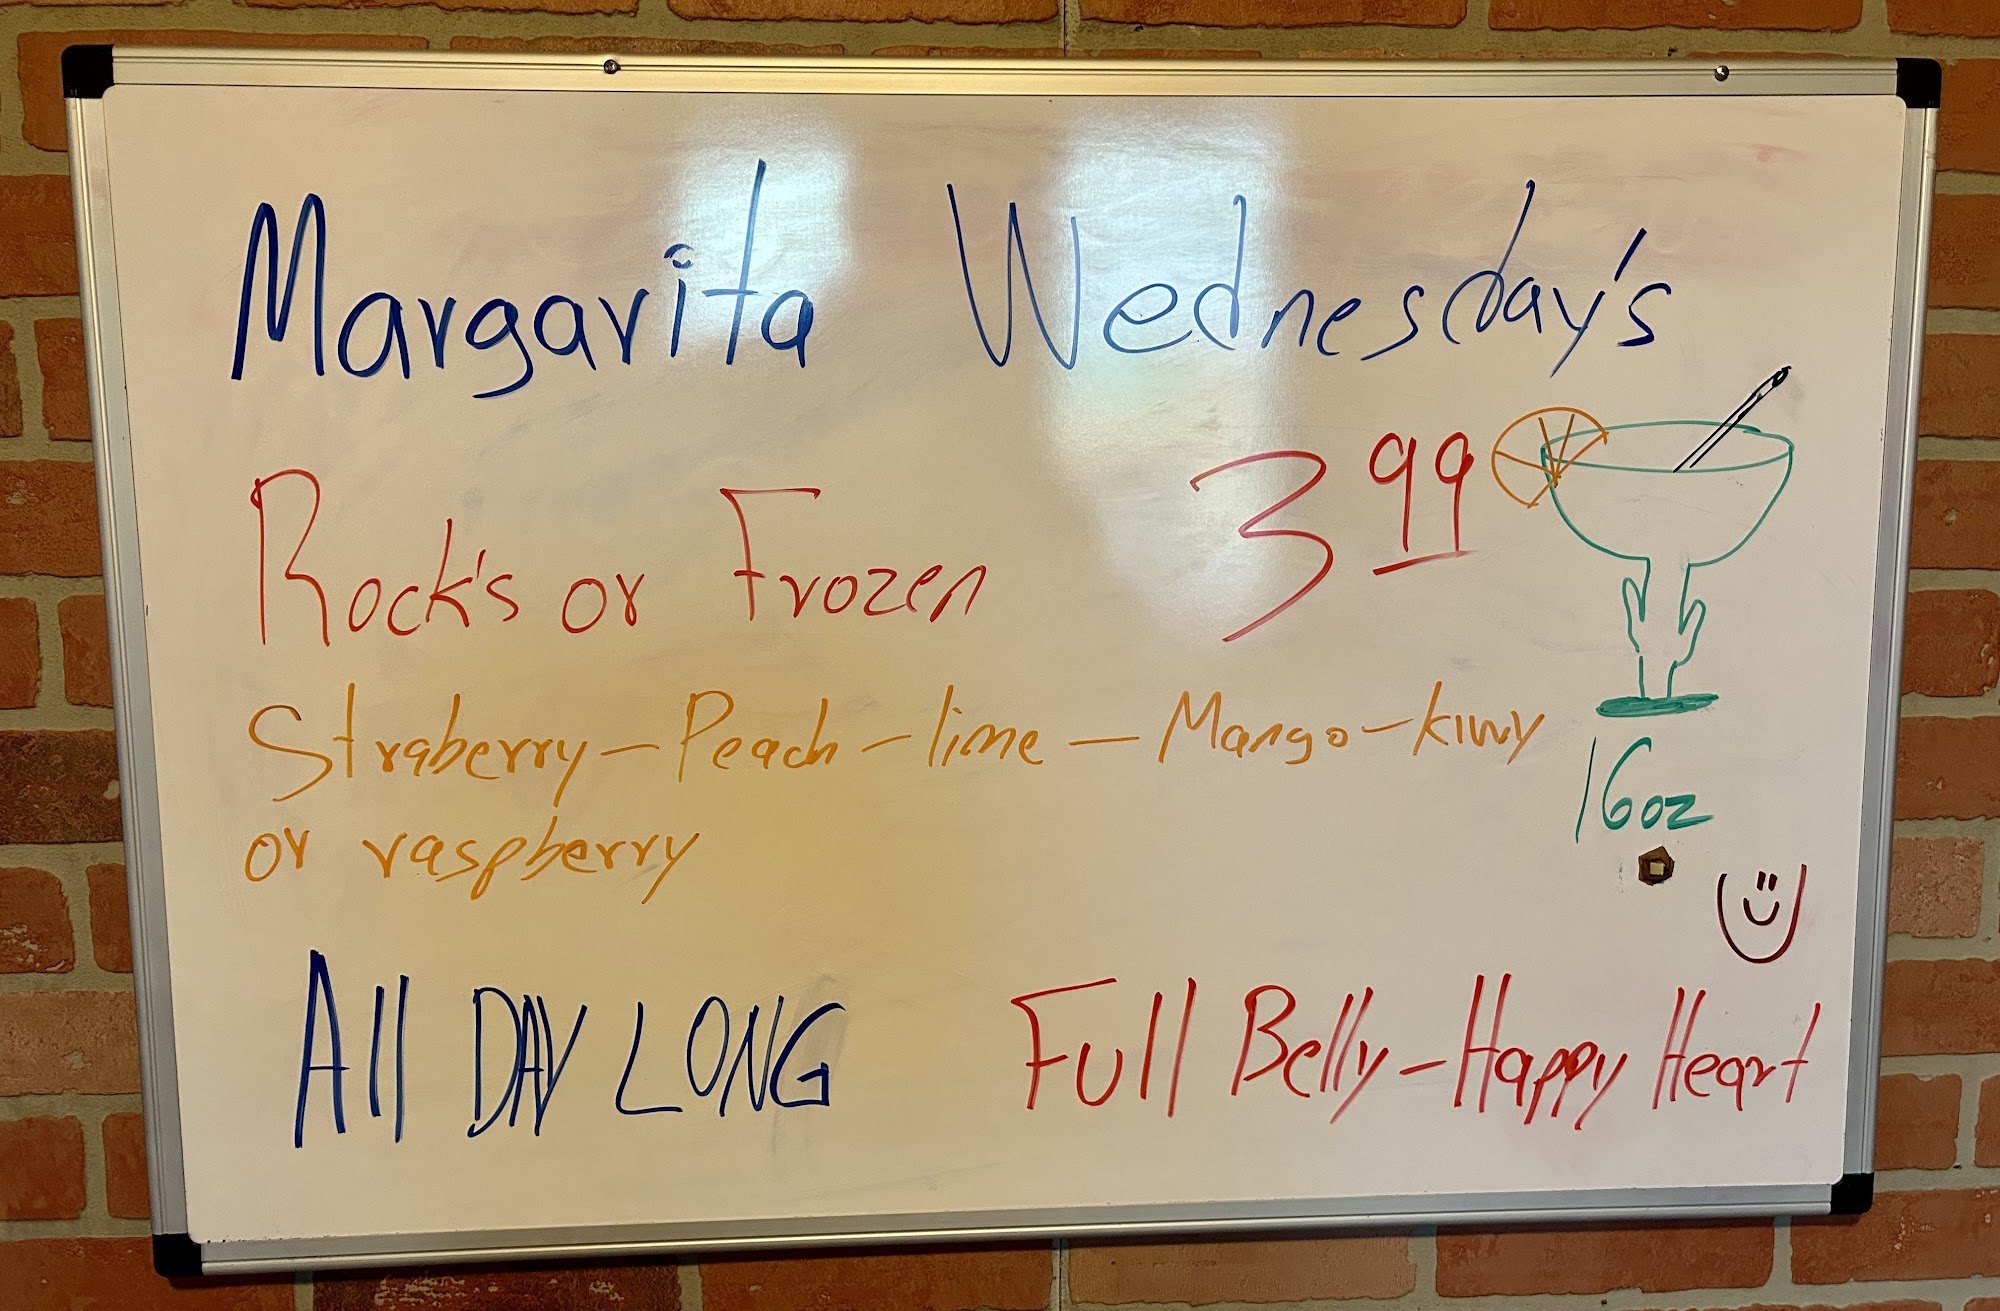 Margarita Wednesday's
Rock's or Frozen 3.99
Straberry - Peach - lime - Mango - kiwy
or raspberry
16oz
All DAY LONG Full Belly - Happy Heart